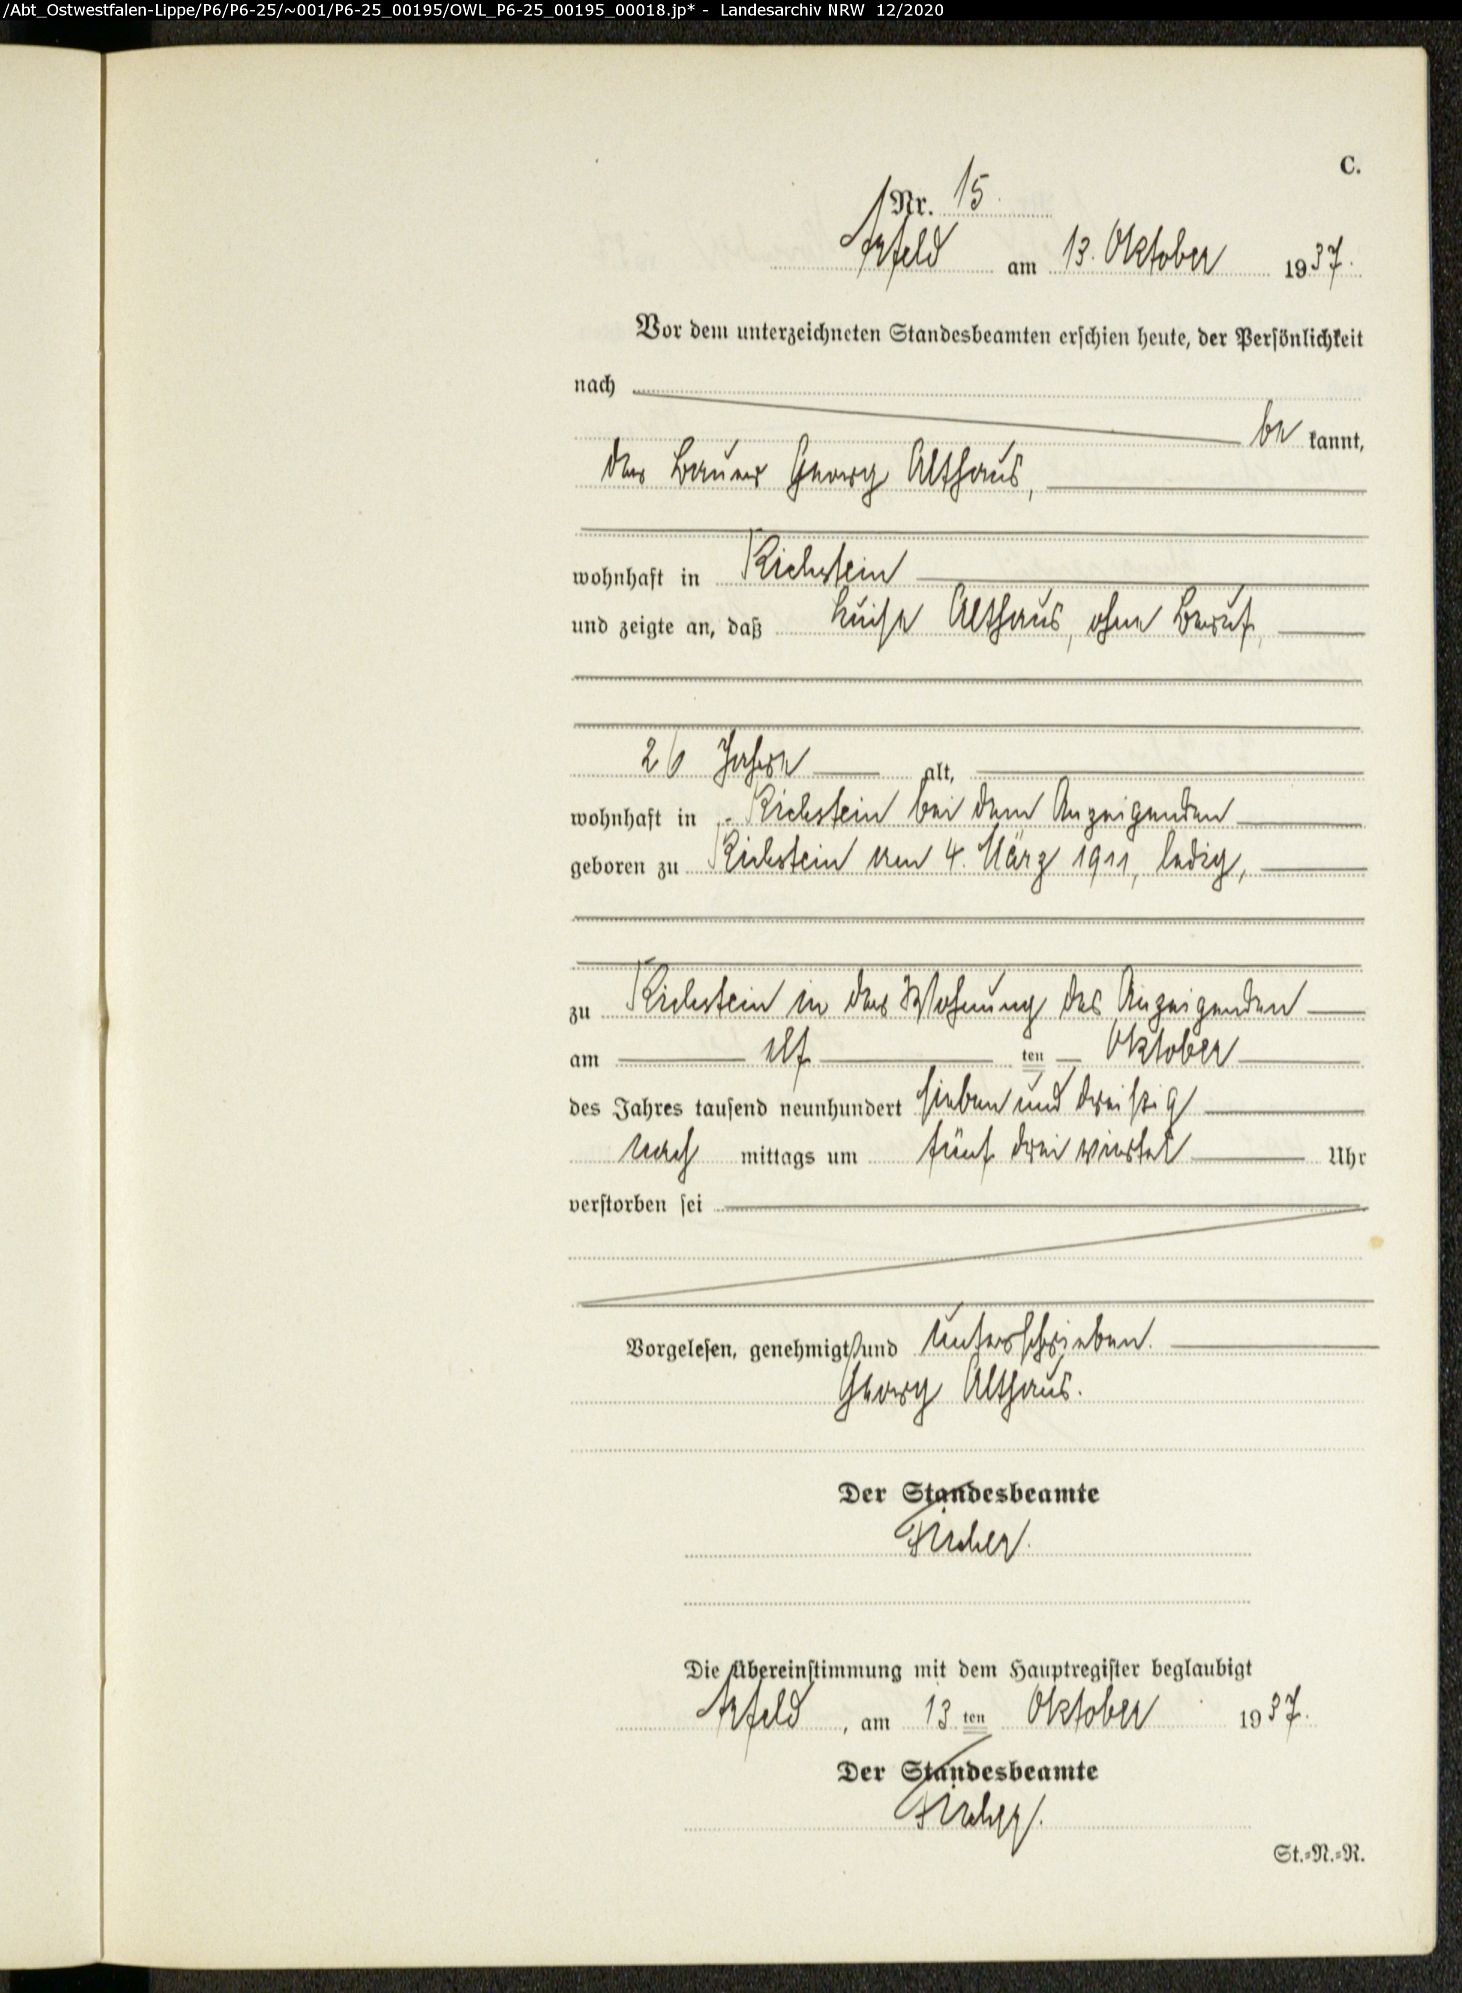 /Abt_Ostwestfalen-Lippe/P6/P6-25/~001/P6-25_00195/OWL_P6-25_00195_00018.jp* - Landesarchiv NRW 12/2020
C.
Nr. 15.
Arfeld am 13. Oktober 1937.
Vor dem unterzeichneten Standesbeamten erschien heute, der Persönlichkeit
nach
be kannt,
der Bauer Georg Althaus,
wohnhaft in Richstein
und zeigte an, daß Luise Althaus, ohne Beruf,
26 Jahre alt,
wohnhaft in Richstein bei dem Anzeigenden
geboren zu Richstein am 4. März 1911, ledig,
zu Richstein in der Wohnung des Anzeigenden
am elf ten Oktober
des Jahres tausend neunhundert sieben und dreißig
nach mittags um fünf dreiviertel Uhr
verstorben sei
Vorgelesen, genehmigt und unterschrieben.
Georg Althaus.
Der Standesbeamte
Die Übereinstimmung mit dem Hauptregister beglaubigt
Arfeld, am 13 ten Oktober 1937.
Der Standesbeamte
St.=N.=R.